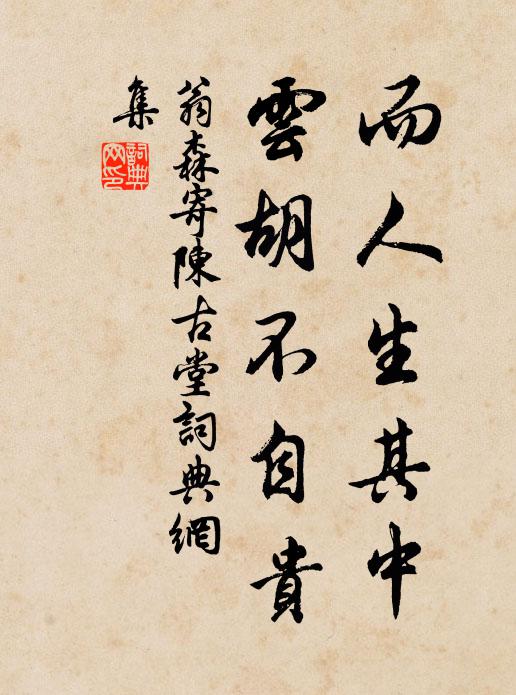 而人生其中
雲胡不自貴
翁森寄陳古堂詞典網
集
詞典
網印